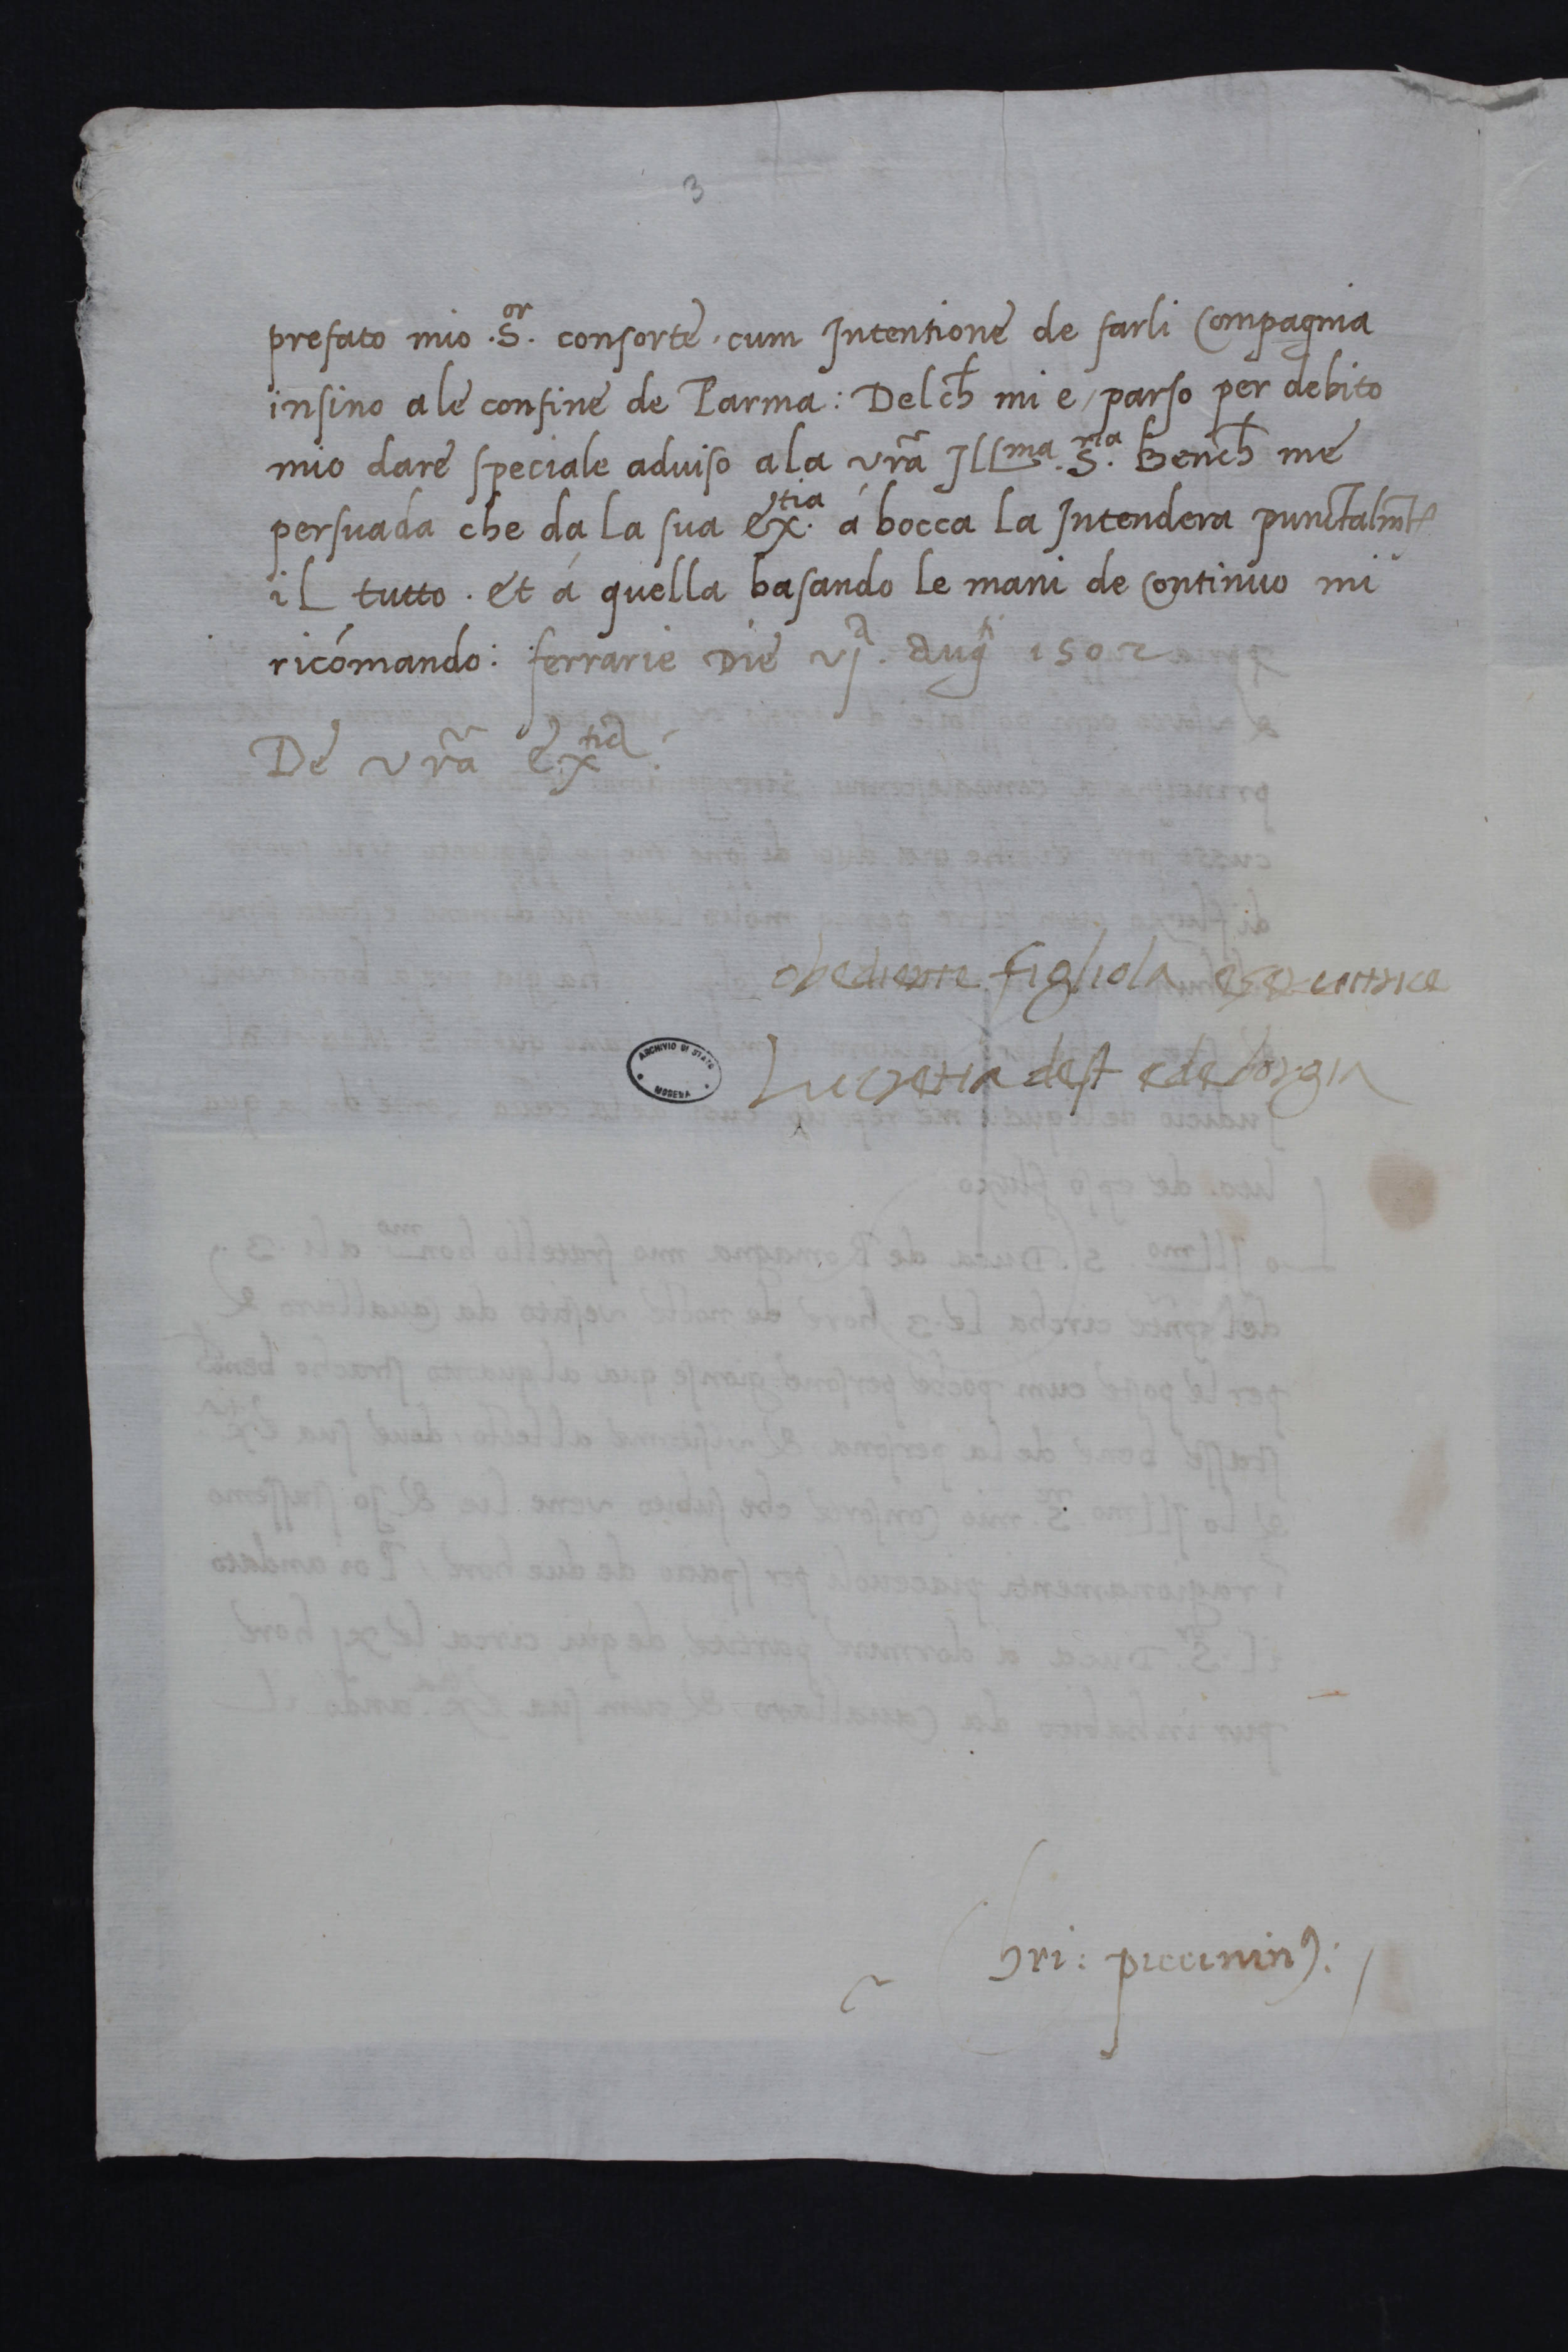 3
prefato mio .S.or consorte. cum Intentione de farli Compagnia
insino a le confine de Parma: Delch mi e, parso per debito
mio dare speciale aduiso a la vra Illma. S.ria Bench me
persuada che da la sua Ex.tia á bocca la Intendera punctalmte
il tutto. Et á quella basando le mani de Continuo mi
ricómando: ferrarie Die vj.a Augti 1502
De vra Extia:
obediente figliola e servitrice
Lucretia dest e de borgia
ARCHIVIO DI STATO
MODENA
hri: piccinin9: